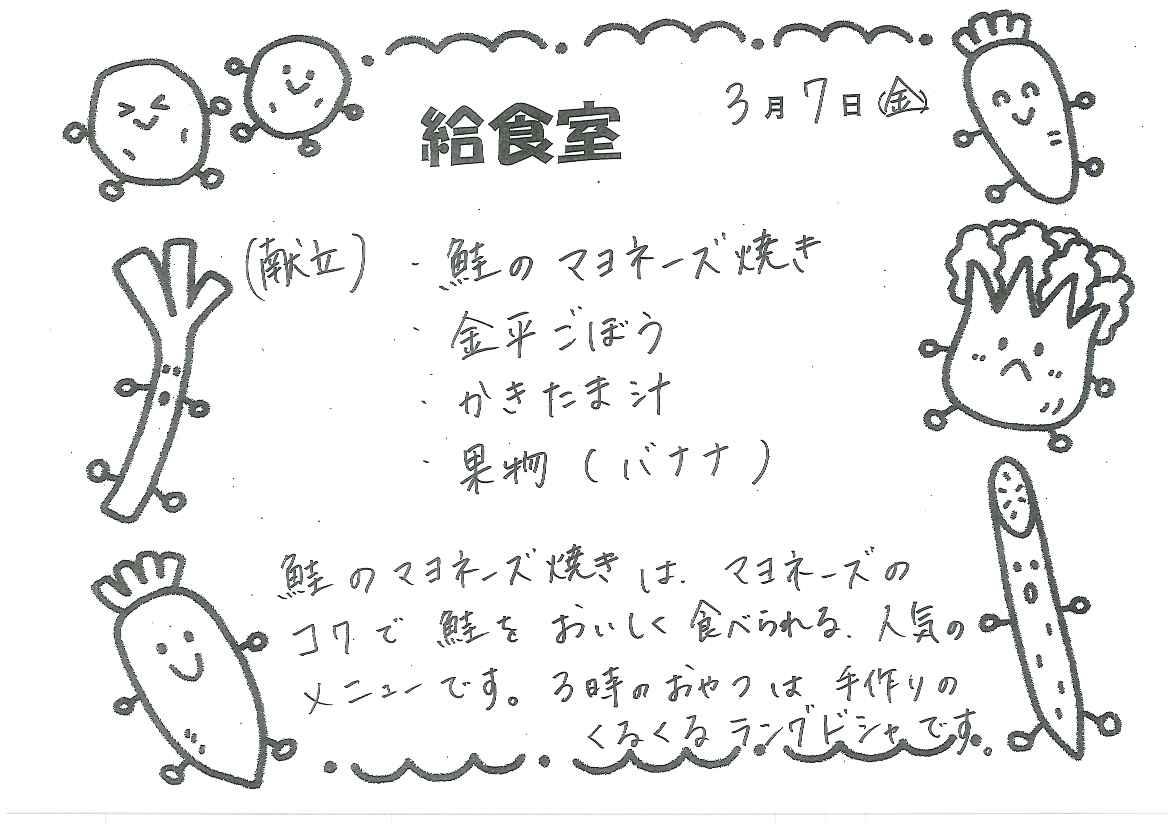 給食室
3月7日(金)
(献立)・鮭のマヨネーズ焼き
・金平ごぼう
・かきたま汁
・果物(バナナ)
鮭のマヨネーズ焼きは、マヨネーズの
コクで鮭をおいしく食べられる、人気の
メニューです。3時のおやつは手作りの
くるくるラングドシャです。